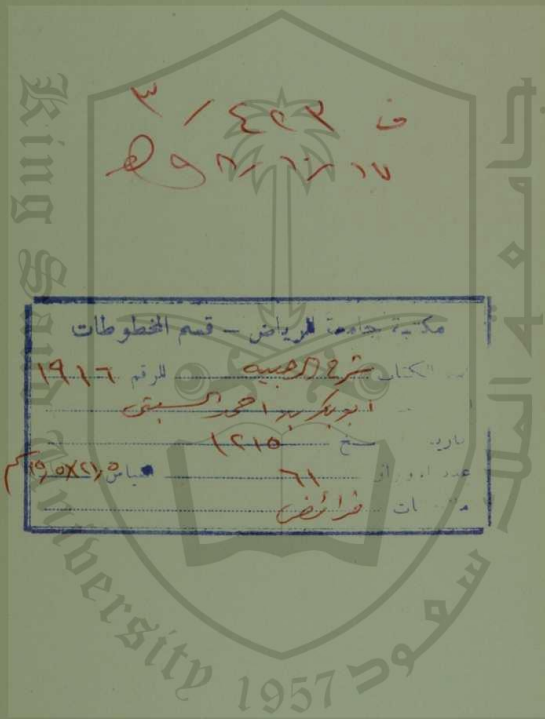 ف ٤٢٣ / ٣
١٧ / ٦ / ٩٨ هـ
مكتبة جامعة الرياض - قسم المخطوطات
الكتاب شرح الرحبيه الرقم ١٩١٦
ابو بكر بن احمد السبتي
تاريخ النسخ ١٢١٥
عدد الاوراق ٦١ قياس ٢١٫٥×١٥٫٥ سم
ات فرائض
King Saud University
1957
جامعة الملك سعود